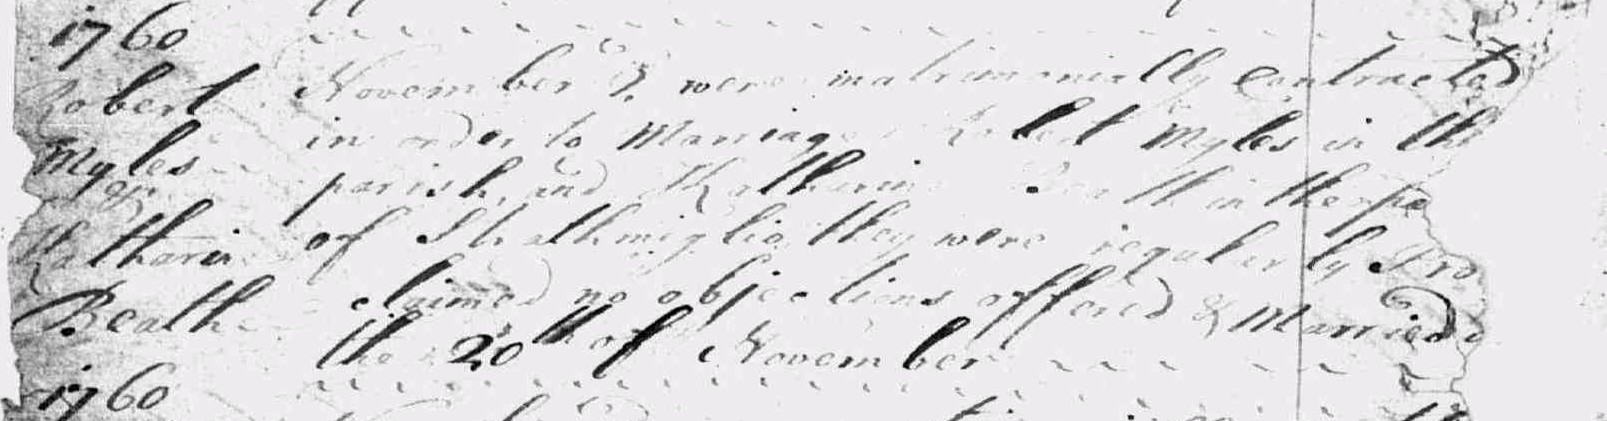 1760
Robert
Myles
&
Katharin
Beath
November were matrimonially contracted
in order to Marriage Robert Myles in the
parish, and Katharin Beath in the pa
of Strathmiglio, they were regularly Pro
claimed no objections offered & Married
the 20th of November
1760